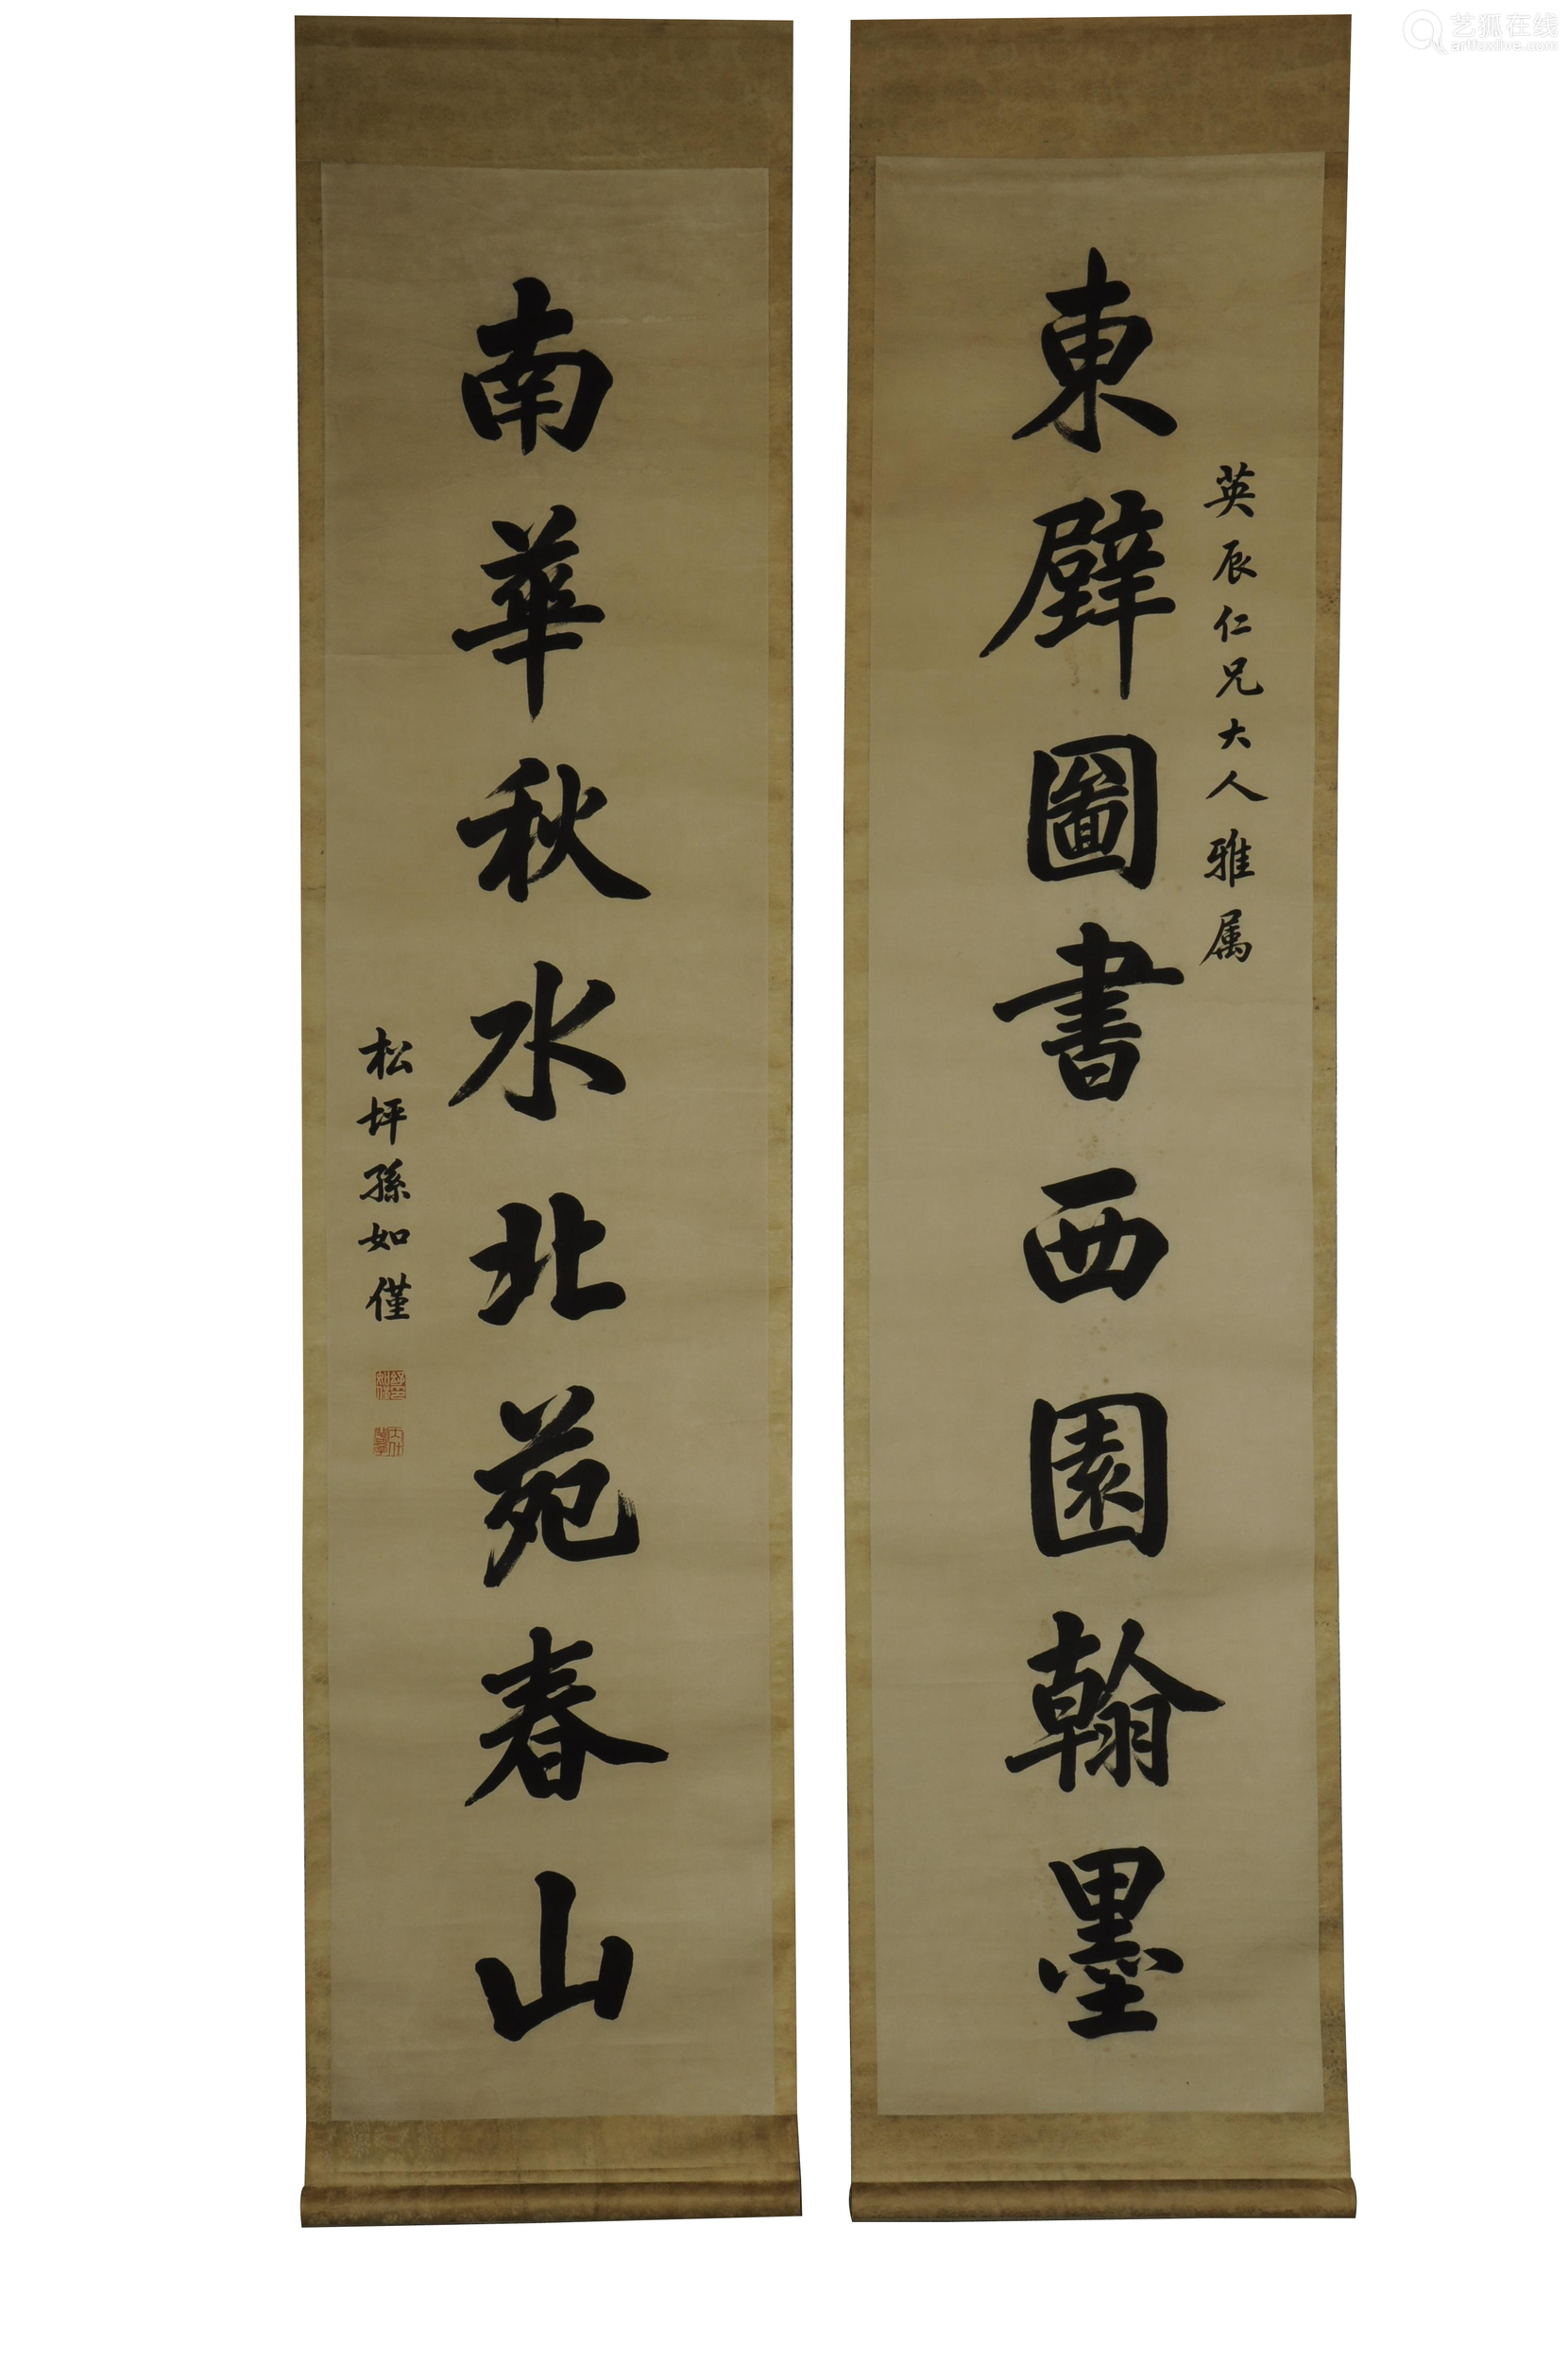 英辰仁兄大人雅属
東壁圖書西園翰墨
南華秋水北苑春山
松坪孫如僅
艺狐在线
artfoxlive.com